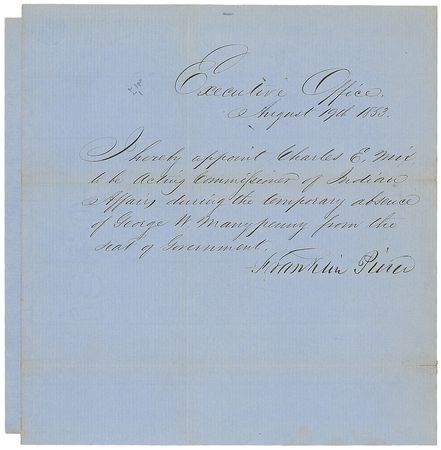 Executive Office.
August 19th 1853.
I hereby appoint Charles E. Mix
to be Acting Commissioner of Indian
Affairs during the temporary absence
of George W. Manypenny from the
seat of Government.
Franklin Pierce